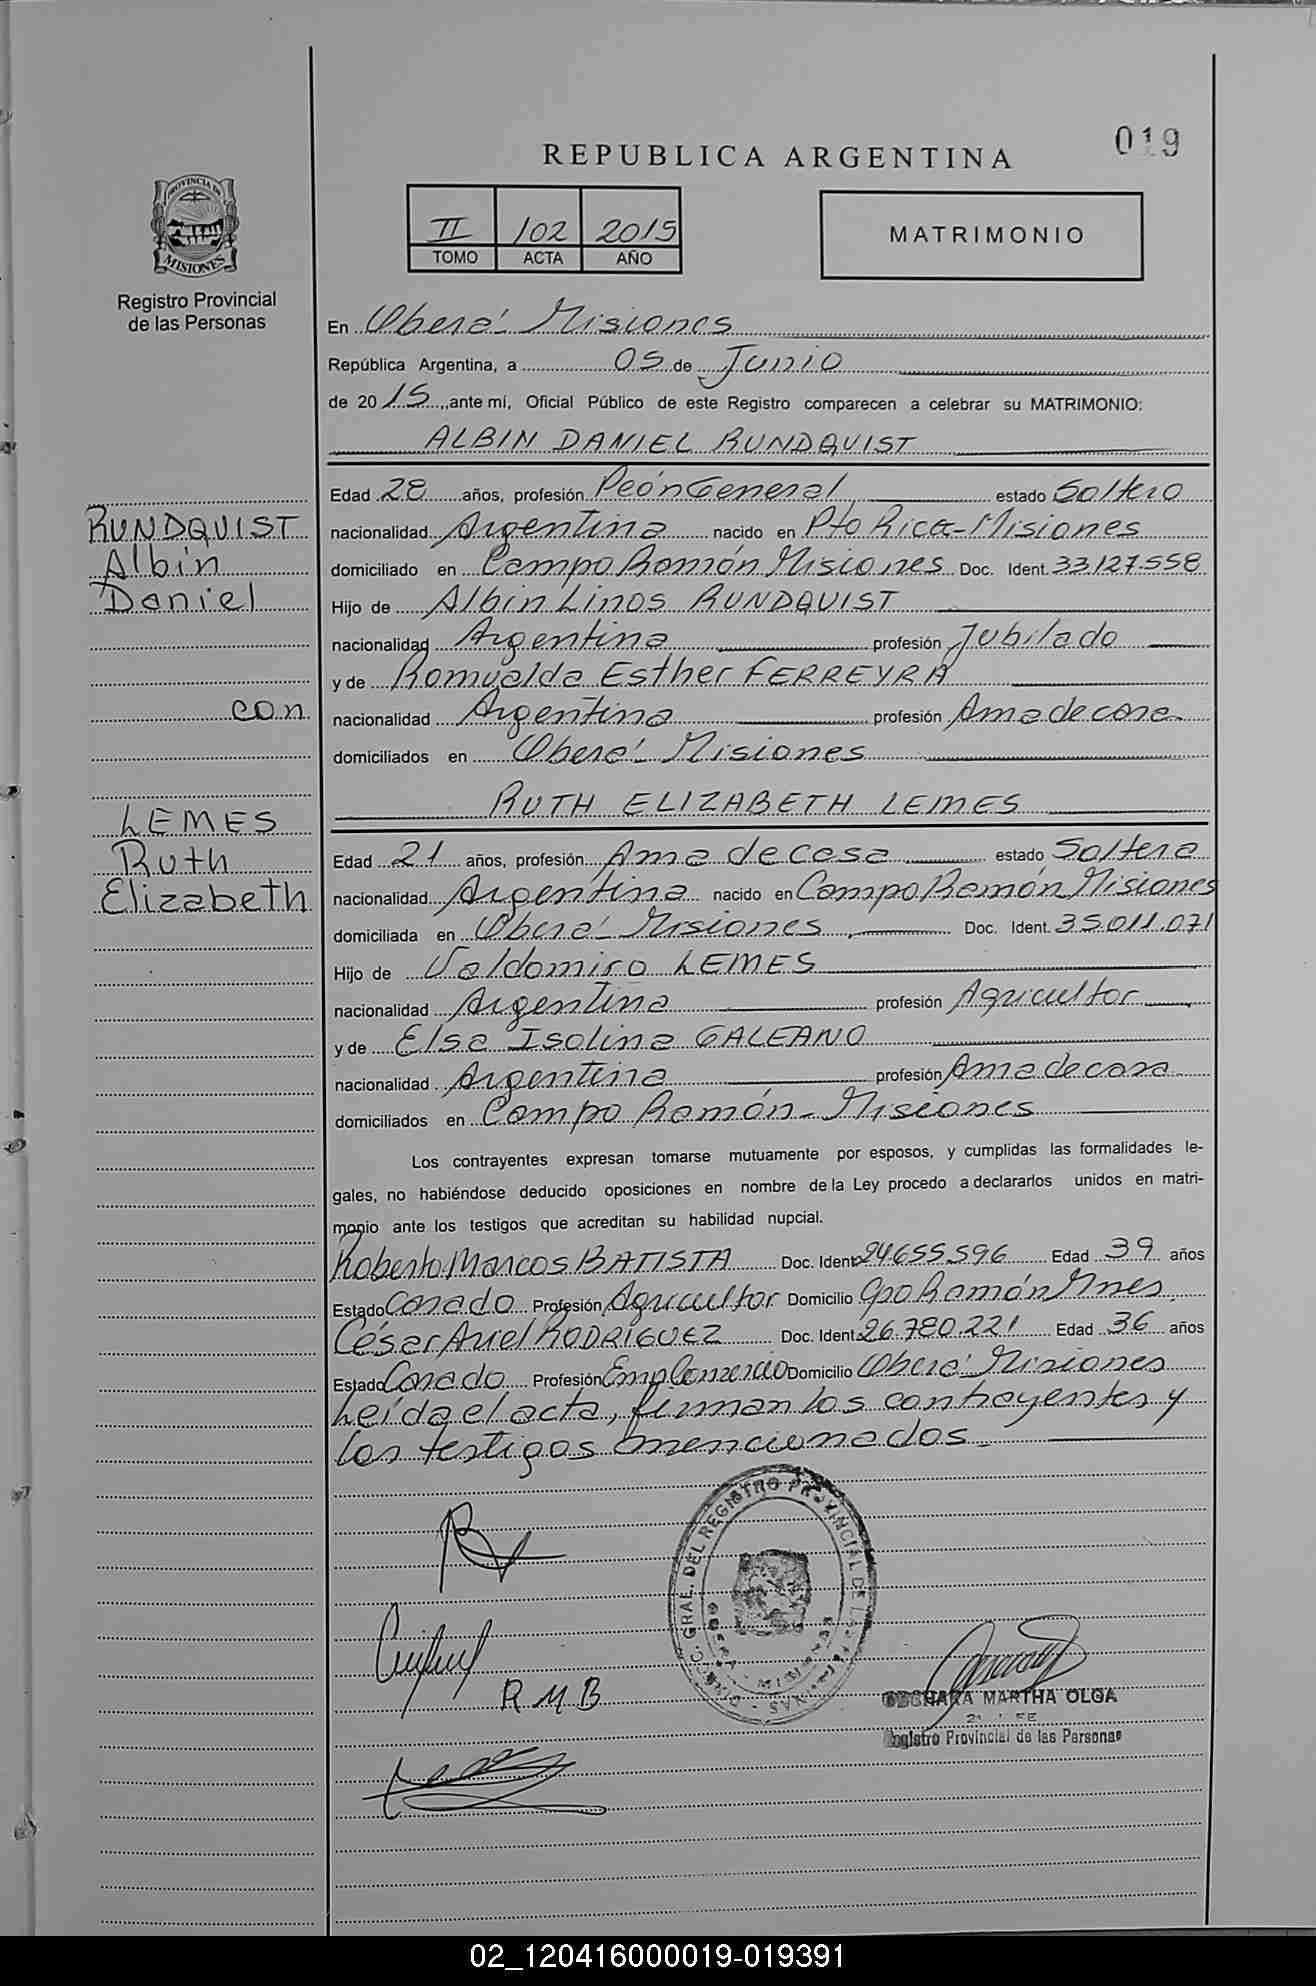 019
REPUBLICA ARGENTINA
II 102 2015
TOMO ACTA AÑO
MATRIMONIO
PROVINCIA DE
MISIONES
Registro Provincial
de las Personas
En Oberá - Misiones
República Argentina, a 05 de Junio
de 2015, ante mí, Oficial Público de este Registro comparecen a celebrar su MATRIMONIO:
ALBIN DANIEL RUNDQUIST
Edad 28 años, profesión Peón General estado Soltero
nacionalidad Argentina nacido en Pto Rico-Misiones
domiciliado en Campo Ramón Misiones Doc. Ident. 33.127.558
Hijo de Albin Linos RUNDQUIST
nacionalidad Argentina profesión Jubilado
y de Romualda Esther FERREYRA
nacionalidad Argentina profesión Ama de casa
domiciliados en Oberá - Misiones
RUTH ELIZABETH LEMES
Edad 21 años, profesión Ama de casa estado Soltera
nacionalidad Argentina nacido en Campo Ramón Misiones
domiciliada en Oberá - Misiones Doc. Ident. 35.011.071
Hijo de Valdomiro LEMES
nacionalidad Argentina profesión Agricultor
y de Elsa Isolina GALEANO
nacionalidad Argentina profesión Ama de casa
domiciliados en Campo Ramón - Misiones
Los contrayentes expresan tomarse mutuamente por esposos, y cumplidas las formalidades le-
gales, no habiéndose deducido oposiciones en nombre de la Ley procedo a declararlos unidos en matri-
monio ante los testigos que acreditan su habilidad nupcial.
Roberto Marcos BATISTA Doc. Ident. 24.655.596 Edad 39 años
Estado Casado Profesión Agricultor Domicilio Cpo Ramón Mnes.
César Ariel RODRÍGUEZ Doc. Ident. 26.780.221 Edad 36 años
Estado Casado Profesión Emp Comercio Domicilio Oberá Misiones
Leída el acta, firman los contrayentes y
los testigos mencionados.
RUNDQUIST
Albin
Daniel
con
LEMES
Ruth
Elizabeth
R M B
GRAL. DEL REGISTRO PROVINCIAL DE LAS PERSONAS
OBERA - MISIONES
MARTHA OLGA
Registro Provincial de las Personas
02_120416000019-019391